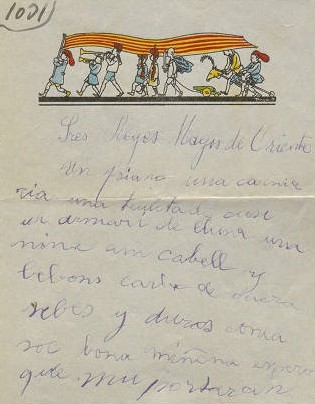 1021
Sres Reyes Magos de Oriente
Un piano una carnise
ria una tauleta de
un armari de lluna una
nina am cabell y
bebons caixa de
sebes y duros coma
soc bona minyna espero
que mu portarán